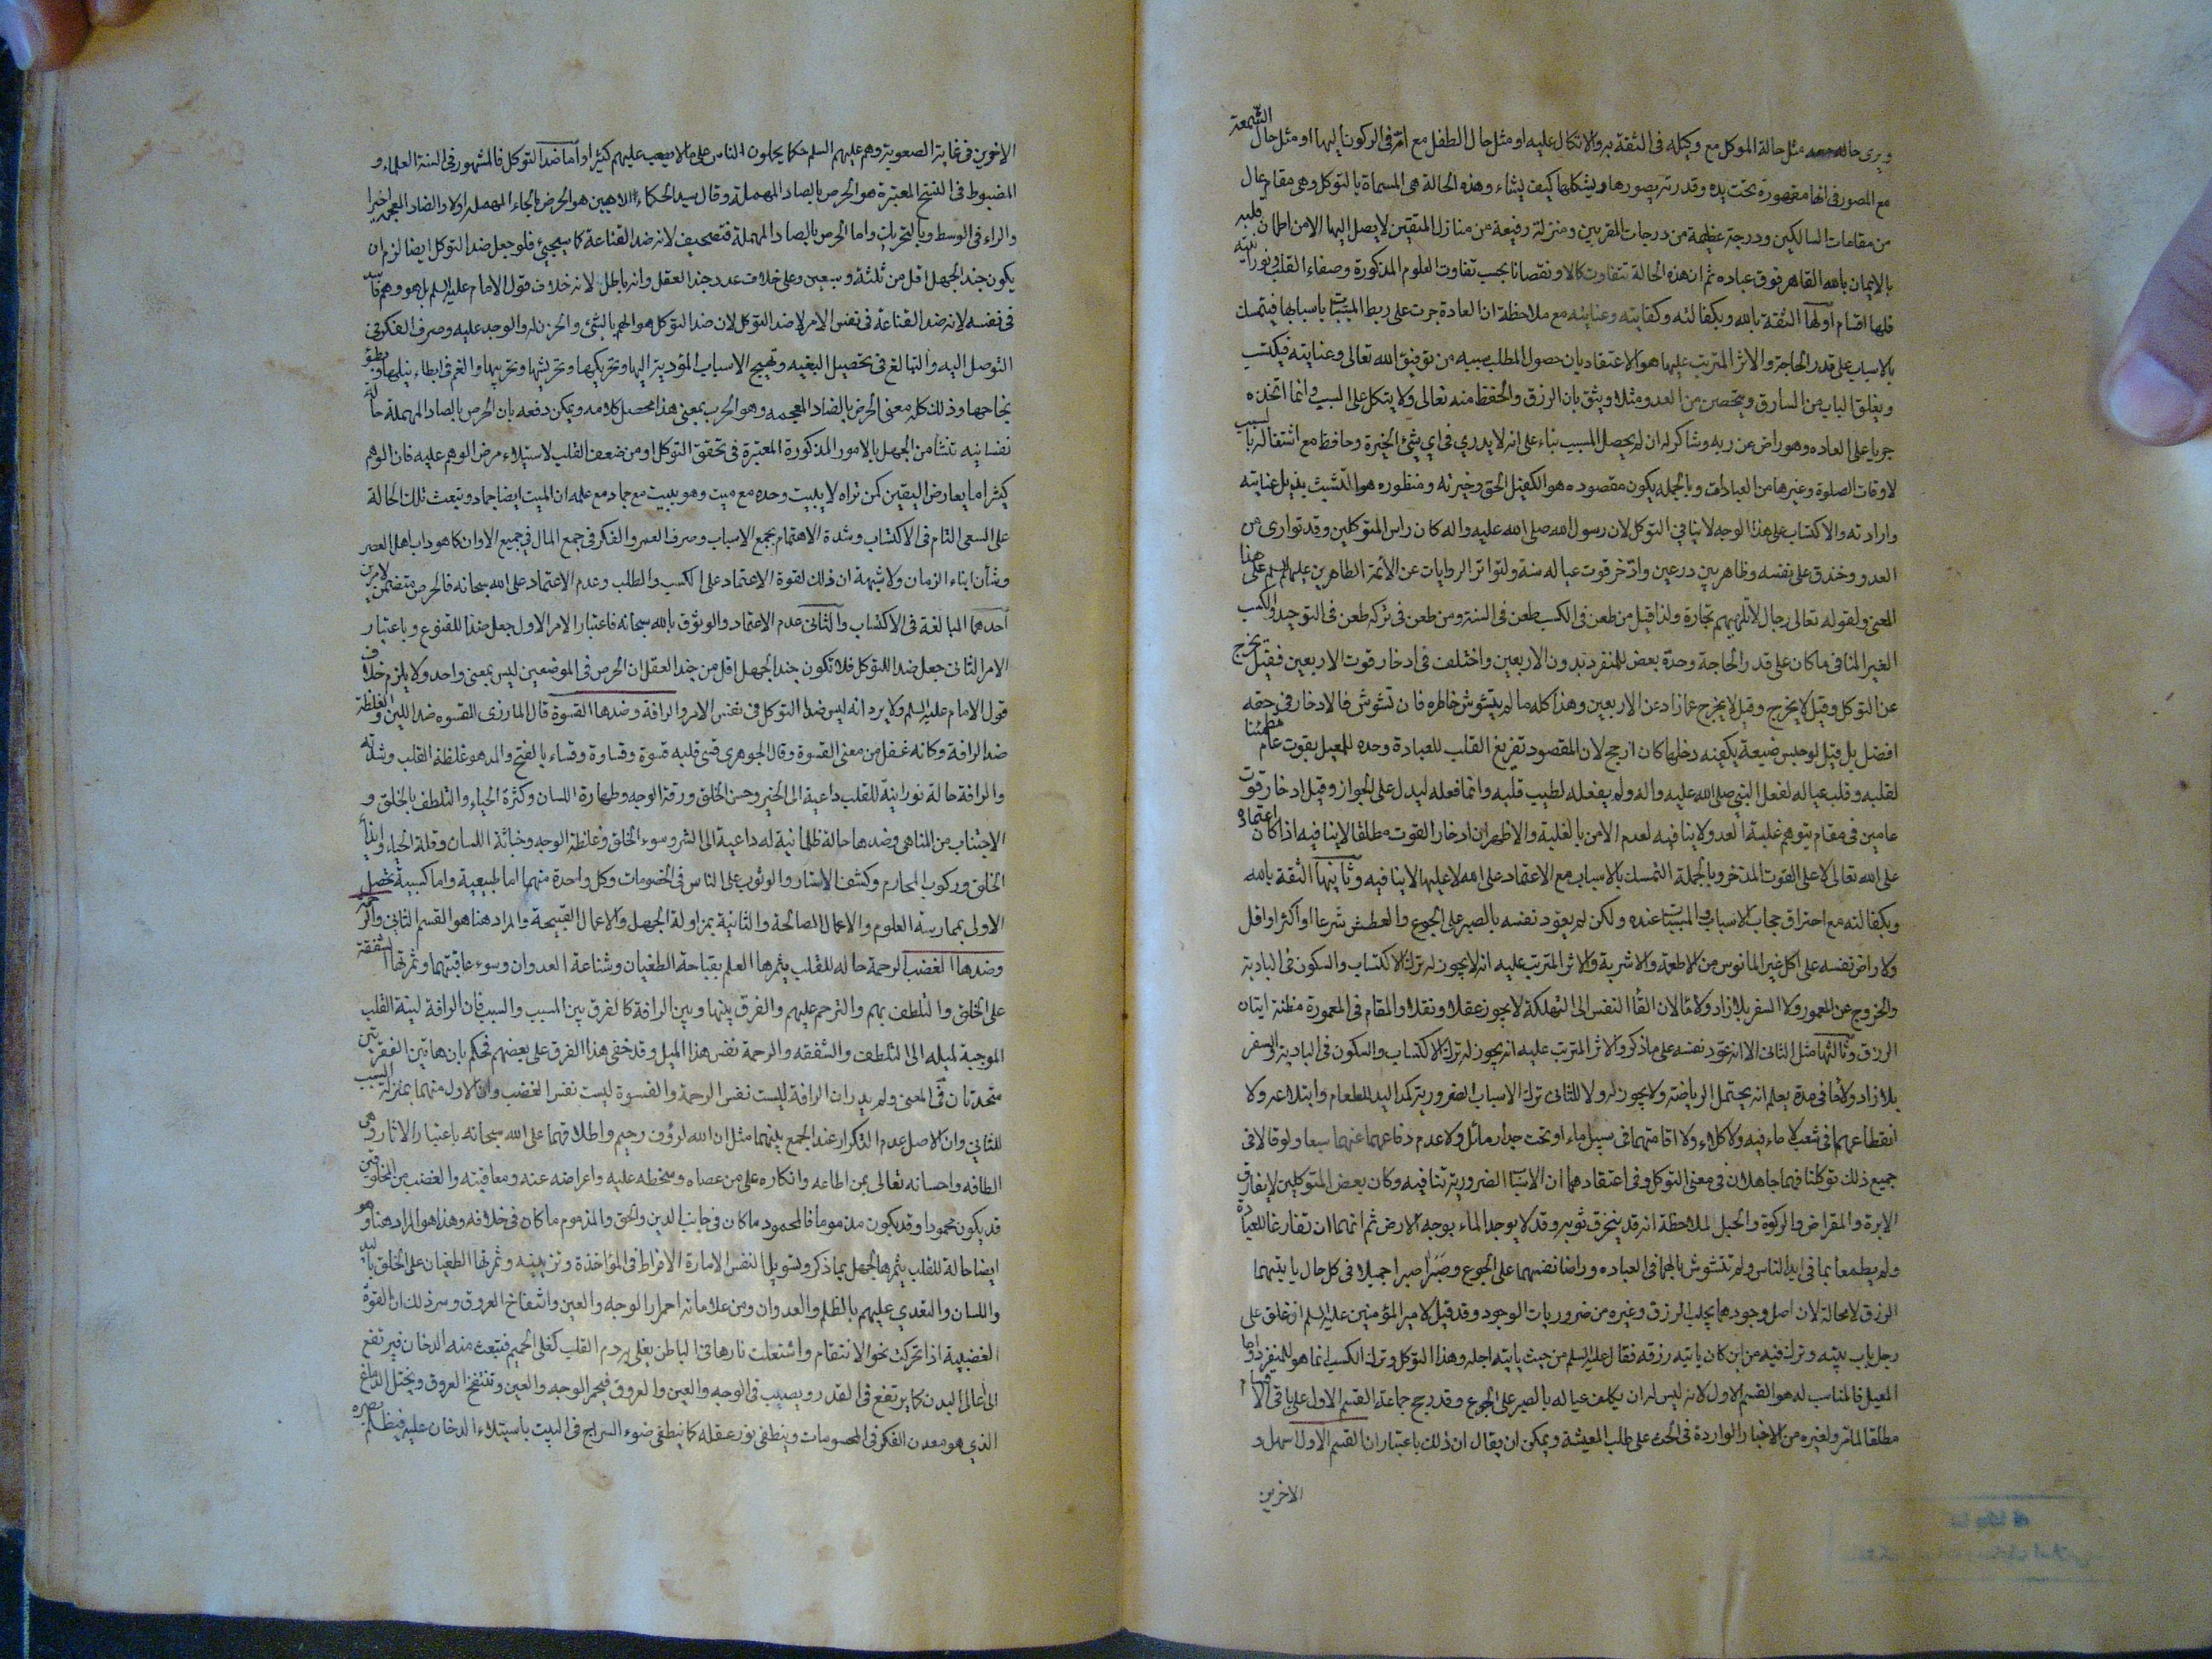 ويرى حاله مثل حالة الموكل مع وكيله في الثقة به والاتكال عليه او مثل حال الطفل مع امه في الركون اليها او مثل حال الشمعة
مع المصور في انها مقهورة تحت يده وقدرته يصورها ويشكلها كيف يشاء وهذه الحالة هي المسماة بالتوكل وهي مقام عال
من مقامات السالكين ودرجة عظيمة من درجات المقربين ومنزلة رفيعة من منازل المتقين لا يصل اليها الا من اطمان قلبه
بالايمان بالله القاهر فوق عباده ثم ان هذه الحالة تتفاوت كمالا ونقصانا بحسب تفاوت العلوم المذكورة وصفاء القلب ونورانيته
فلها اقسام اولها الثقة بالله وبكفالته وكفايته وعنايته مع ملاحظة ان العادة جرت على ربط المسببات باسبابها فيتمسك
بالاسباب على قدر الحاجة والاثر المترتب عليها هو الاعتقاد بان حصول المطلب بسببه من توفيق الله تعالى وعنايته فيكتسب
ويغلق الباب من السارق ويتحصن من العدو مثلا ويثق بان الرزق والحفظ منه تعالى ولا يتكل على السبب وانما اتخذه
جريا على العاده وهو راض عن ربه وشاكر له ان لم يحصل المسبب بناء على انه لا يدري في اي شيء الخيرة وحافظ مع اشتغاله بالسبب
لاوقات الصلوة وغيرها من العبادات وبالجمله يكون مقصوده هو الكفيل الحق وخيرته ومنظوره هو التشبث بذيل عنايته
وارادته والاكتساب على هذا الوجه لا ينافي التوكل لان رسول الله صلى الله عليه واله كان راس المتوكلين وقد توارى من
العدو وخندق على نفسه وظاهر بين درعين وادّخر قوت عياله سنة ولتواتر الروايات عن الأئمة الطاهرين عليهم السلم على هذا
المعنى ولقوله تعالى رجال لا تلهيهم تجارة ولذا قيل من طعن في الكسب طعن في السنة ومن طعن في تركه طعن في التوحيد والكسب
الغير المنافي ما كان على قدر الحاجة وحدّه بعض للمنفرد بدون الاربعين واختلف في ادخار قوت الاربعين فقيل يخرج
عن التوكل وقيل لا يخرج وقيل لا يخرج عما زاد عن الاربعين وهذا كله ما لم يتشوش خاطره فان تشوش فالادخار في حقه
افضل بل قيل لو حبس ضيعة يكفيه دخلها كان ارجح لان المقصود تفريغ القلب للعبادة وحده للمعيل بقوت عام مطمئنا
لقلبه وقلب عياله لفعل النبي صلى الله عليه واله ولم يفعله لطيب قلبه وانما فعله ليدل على الجواز وقيل ادخار قوت
عامين في مقام يتوهم غلبة العدو لا ينافيه لعدم الامن بالغلبة والاظهر ان ادخار القوت مطلقا لا ينافيه اذا كان اعتماده
على الله تعالى لا على القوت المدخر وبالجملة التمسك بالاسباب مع الاعتماد على الله لا عليها لا ينافيه وثانيها الثقة بالله
وبكفالته مع احتراق حجاب الاسباب والمسببات عنده ولكن لم يعود نفسه بالصبر على الجوع والعطش شرعا او اكثر او اقل
ولا راض نفسه على اكل غير المانوس من الاطعمة والاشربة والاثر المترتب عليه انه لا يجوز له ترك الاكتساب والسكون في البادية
والخروج عن المعمور ولا السفر بلا زاد ولا ماء لان القاء النفس الى التهلكة لا يجوز عقلا ونقلا والمقام في المعمورة مظنة اتيان
الرزق وثالثها مثل الثاني الا انه عود نفسه على ما ذكر والاثر المترتب عليه انه يجوز له ترك الاكتساب والسكون في البادية والسفر
بلا زاد ولا ماء في مدة يعلم انه يحتمل الرياضة ولا يجوز له ولا للثاني ترك الاسباب الضرورية كمد اليد للطعام وابتلاعه ولا
انقطاعهما في شعب لا ماء فيه ولا كلاء ولا اقامتهما في سيل ماء او تحت جدار مائل ولا عدم دفاعهما عنهما سبعا ولو قالا في
جميع ذلك توكلنا فهما جاهلان في معنى التوكل وفي اعتقادهما ان الاسباب الضرورية تنافيه وكان بعض المتوكلين لا يفارق
الابرة والمقراض والركوة والحبل لملاحظة انه قد ينخرق ثوبه وقد لا يوجد الماء بوجه الارض ثم انهما ان تفارغا للعبادة
ولم يطمعا بما في ايدي الناس ولم تتشوش بالهما في العباده وراضا نفسهما على الجوع وصبرا صبرا جميلا في كل حال ياتيهما
الرزق لا محالة لان اصل وجودهما يجلب الرزق وغيره من ضروريات الوجود وقد قيل لامير المؤمنين عليه السلم لو غلق على
رجل باب بيته وترك فيه من اين كان ياتيه رزقه فقال عليه السلم من حيث ياتيه اجله وهذا التوكل وترك الكسب انما هو للمنفرد واما
المعيل فالمناسب له هو القسم الاول لانه ليس له ان يكلف عياله بالصبر على الجوع وقد رجح جماعة القسم الاول على باقي الاقسام
مطلقا لما مر ولغيره من الاخبار الواردة في الحث على طلب المعيشة ويمكن ان يقال ان ذلك باعتبار ان القسم الاول سهل و
الاخرين
الاخرين في غاية الصعوبة وهم عليهم السلم حكما يحملون الناس على ما لا يصعب عليهم كثيرا واما ضد التوكل فالمشهور في السنة العلماء و
المضبوط في النسخ المعتبرة هو الحرص بالصاد المهملة وقال سيد الحكماء الالهيين هو الحرض بالحاء المهمله اولا والضاد المعجمه اخيرا
والراء في الوسط وبالتحريك واما الحرص بالصاد المهملة فتصحيف لانه ضد القناعة كما سيجيئ فلو جعل ضد التوكل ايضا لزم ان
يكون جند الجهل اقل من ثلثة وسبعين وعلى خلاف عدد جند العقل وانه باطل لانه خلاف قول الامام عليه السلم بل هو وهم فاسد
في نفسه لانه ضد القناعة في نفس الامر لا ضد التوكل لان ضد التوكل هو الهم بالشئ والحزن له والوجد عليه وصرف الفكر في
التوصل اليه والتبالغ في تحصيل البغيه وتهييج الاسباب المؤدية اليها وتحريكها وتحريشها وتحريبها والغم في ابطاء نيلها وبطؤ
نجاحها وذلك كله معنى الحرض بالضاد المعجمه وهو الحرب بمعنى هذا محصل كلامه ويمكن دفعه بان الحرص بالصاد المهملة حالة
نفسانيه تنشا من الجهل بالامور المذكورة المعتبرة في تحقق التوكل او من ضعف القلب لاستيلاء مرض الوهم عليه فان الوهم
كثيرا ما يعارض اليقين كمن تراه لا يبيت وحده مع ميت وهو يبيت مع جماد مع علمه ان الميت ايضا جماد وتبعث تلك الحالة
على السعي التام في الاكتساب وشدة الاهتمام بجمع الاسباب وصرف العمر والفكر في جمع المال في جميع الاوان كما هو داب اهل العصر
وشأن ابناء الزمان ولا شبهة ان ذلك لقوة الاعتماد على الكسب والطلب وعدم الاعتماد على الله سبحانه فالحرص متضمن لامرين
احدهما المبالغة في الاكتساب والثاني عدم الاعتماد والوثوق بالله سبحانه فاعتبار الامر الاول جعل ضدا للقنوع وباعتبار
الامر الثاني جعل ضدا للتوكل فلا تكون جند الجهل اقل من جند العقل ان الحرص في الموضعين ليس بمعنى واحد ولا يلزم خلاف
قول الامام عليه السلم ولا يرد انه ليس ضد التوكل في نفس الامر والرافة وضدها القسوة قال المازرى القسوه ضد اللين والغلظة
ضد الرافة وكانه غفل من معنى القسوة وقال الجوهري قسى قلبه قسوة وقساوة وقساء بالفتح والمد هو غلظة القلب وشدته
والرافة حالة نورانية للقلب داعية الى الخير وحسن الخلق ورقة الوجه وطهارة اللسان وكثرة الحياء والتلطف بالخلق و
الاجتناب من المناهي وضدها حالة ظلمانية له داعية الى الشر وسوء الخلق وغلظة الوجه وخباثة اللسان وقلة الحياء وايذاء
الخلق وركوب المحارم وكشف الاستار والوثوب على الناس في الخصومات وكل واحدة منهما اما طبيعية واما كسبية تحصل
الاولى بممارسة العلوم والاعمال الصالحة والثانية بمزاولة الجهل والاعمال القبيحة والمراد هنا هو القسم الثاني والرحمة
وضدها الغضب الرحمة حاله للقلب يثمرها العلم بقباحة الطغيان وشناعة العدوان وسوء عاقبتهما وثمرتها الشفقة
على الخلق والتلطف بهم والترحم عليهم والفرق بينها وبين الرافة كالفرق بين المسبب والسبب فان الرافة لينة القلب
الموجبة لميله الى التلطف والشفقه والرحمة نفس هذا الميل وقد خفي هذا الفرق على بعضهم فحكم بان هاتين الفقرتين
متحدتان في المعنى ولم يدر ان الرافة ليست نفس الرحمة والقسوة ليست نفس الغضب وان الاول منهما بمنزلة السبب
للثاني وان الاصل عدم التكرار عند الجمع بينهما مثل ان الله لرؤف رحيم واطلاقهما على الله سبحانه باعتبار الاثار وهي
الطافه واحسانه تعالى بمن اطاعه وانكاره على من عصاه وسخطه عليه واعراضه عنه ومعاقبته والغضب من المخلوقين
قد يكون محمودا وقد يكون مذموما فالمحمود ما كان في جانب الدين والحق والمذموم ما كان في خلافه وهذا هو المراد هنا وهو
ايضا حالة للقلب يثمرها الجهل بما ذكر وتسويل النفس الامارة الافراط في المؤاخذة وتزيينه وثمرتها الطغيان على الخلق باليد
واللسان والتعدي عليهم بالظلم والعدوان ومن علاماته احمرار الوجه والعين وانتفاخ العروق وسر ذلك ان القوة
الغضبية اذا تحركت نحو الانتقام واشتعلت نارها في الباطن يغلي بردم القلب كغلي الحميم فتبعث منه الدخان فيرتفع
الى اعالى البدن كما يرتفع في القدر ويصيب في الوجه والعين والعروق فيحمر الوجه والعين وتنتفخ العروق ويختل الدماغ
الذي هو معدن الفكر في المحسومات وينطفي نور عقله كما ينطفى ضوء السراج في البيت باستيلاء الدخان عليه فيظلم بصره